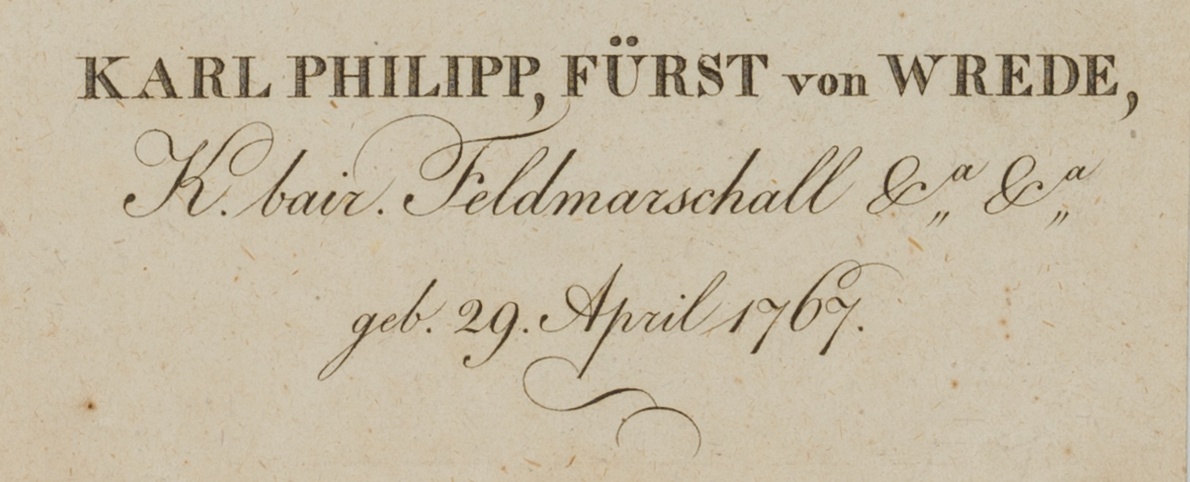 KARL PHILIPP, FÜRST von WREDE,
K. bair. Feldmarschall &„ª &„ª
geb. 29. April 1767.